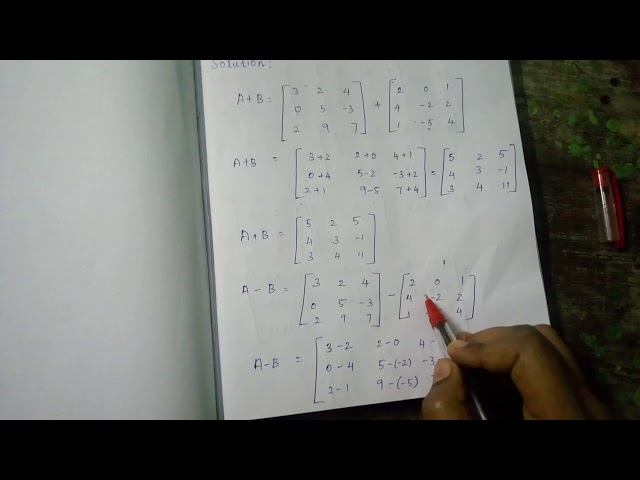 Solution:
A+B = [ 3 2 4 ; 0 5 -3 ; 2 9 7 ] + [ 2 0 1 ; 4 -2 2 ; 1 -5 4 ]
A+B = [ 3+2 2+0 4+1 ; 0+4 5-2 -3+2 ; 2+1 9-5 7+4 ] = [ 5 2 5 ; 4 3 -1 ; 3 4 11 ]
A+B = [ 5 2 5 ; 4 3 -1 ; 3 4 11 ]
A-B = [ 3 2 4 ; 0 5 -3 ; 2 9 7 ] - [ 2 0 1 ; 4 -2 2 ; 1 4 ]
A-B = [ 3-2 2-0 4- ; 0-4 5-(-2) -3 ; 2-1 9-(-5)